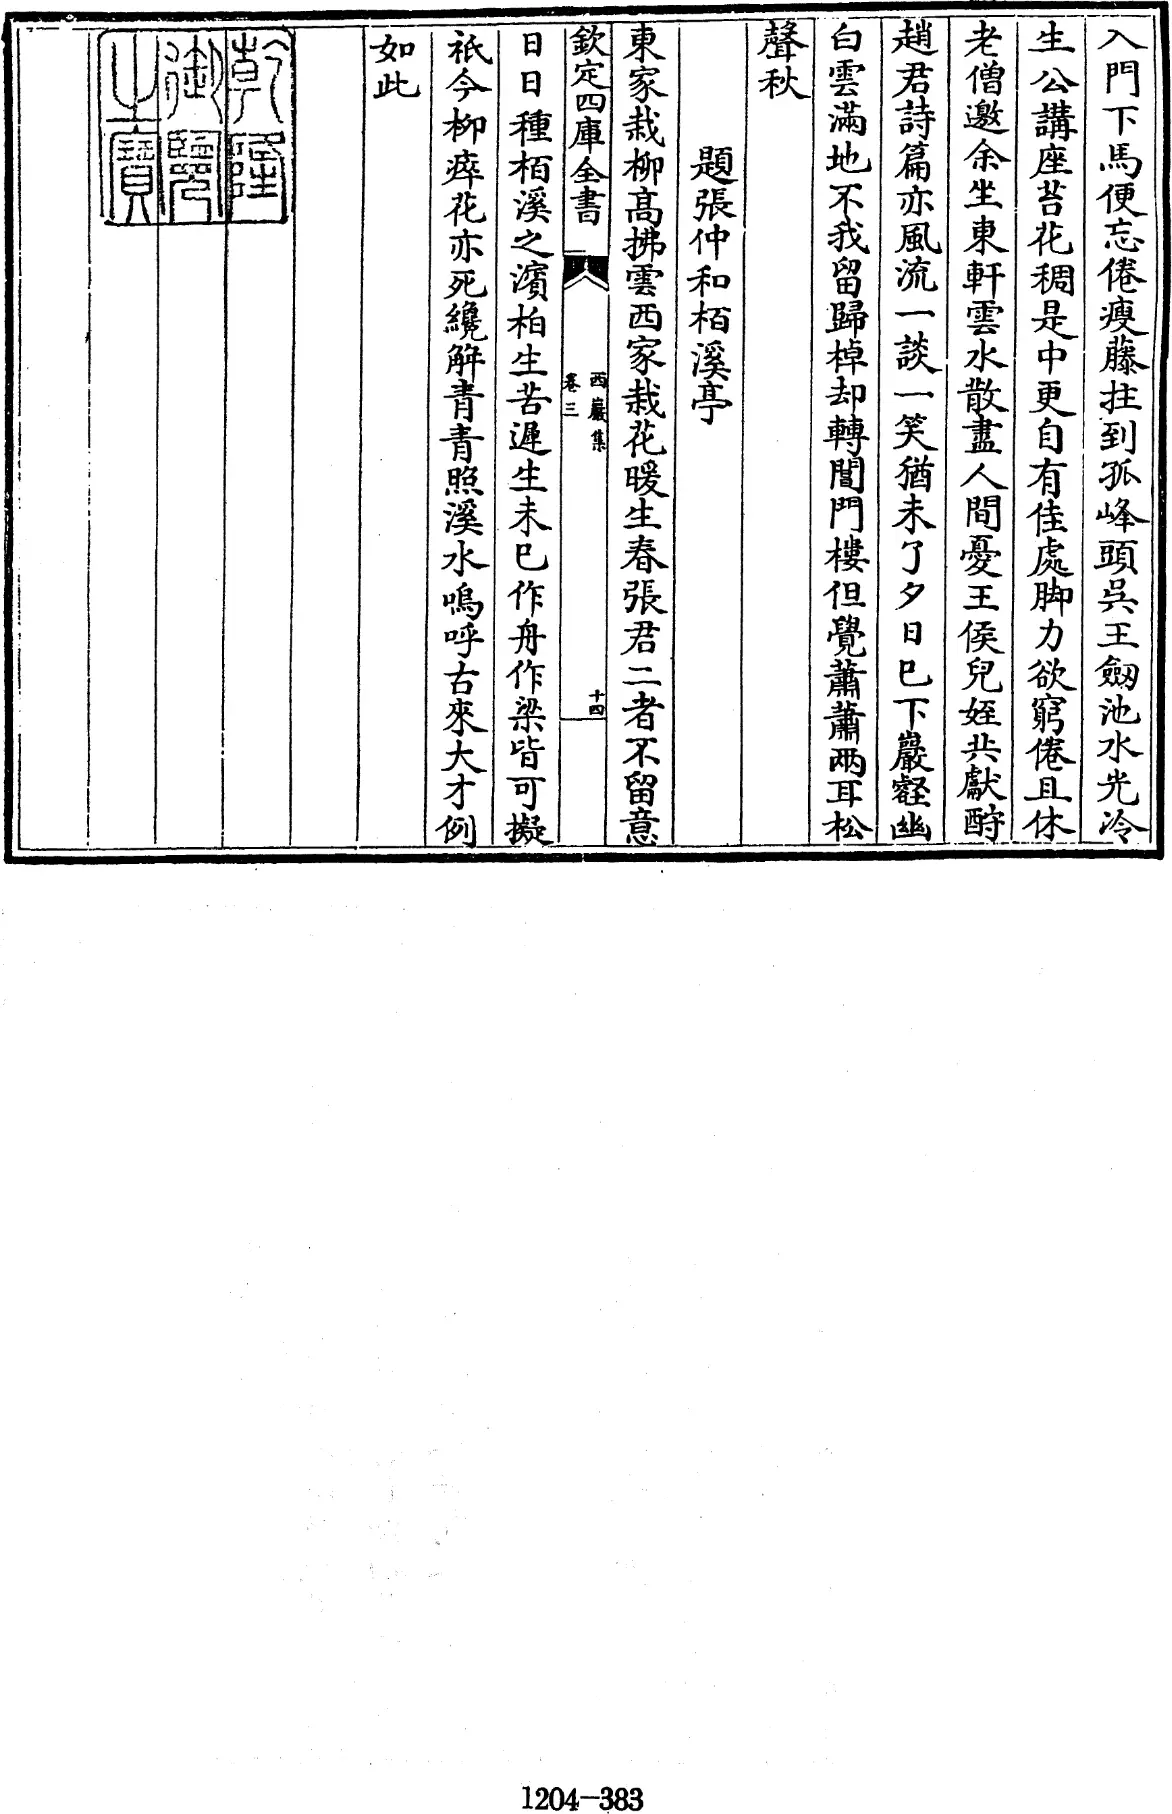 入門下馬便忘倦瘦藤拄到孤峰頭吳王劒池水光冷
生公講座苔花稠是中更自有佳處脚力欲窮倦且休
老僧邀余坐東軒雲水散盡人間憂王侯兒姪共獻酧
趙君詩篇亦風流一談一笑猶未了夕日已下巖壑幽
白雲滿地不我留歸棹却轉閶門樓但覺蕭蕭兩耳松
聲秋
題張仲和栢溪亭
東家栽柳髙拂雲西家栽花暖生春張君二者不留意
欽定四庫全書
西巖集
卷三
十四
日日種栢溪之濱柏生苦遲生未已作舟作梁皆可擬
祇今柳瘁花亦死纔解青青照溪水嗚呼古來大才例
如此
乾隆
御覽
之寶
1204-383